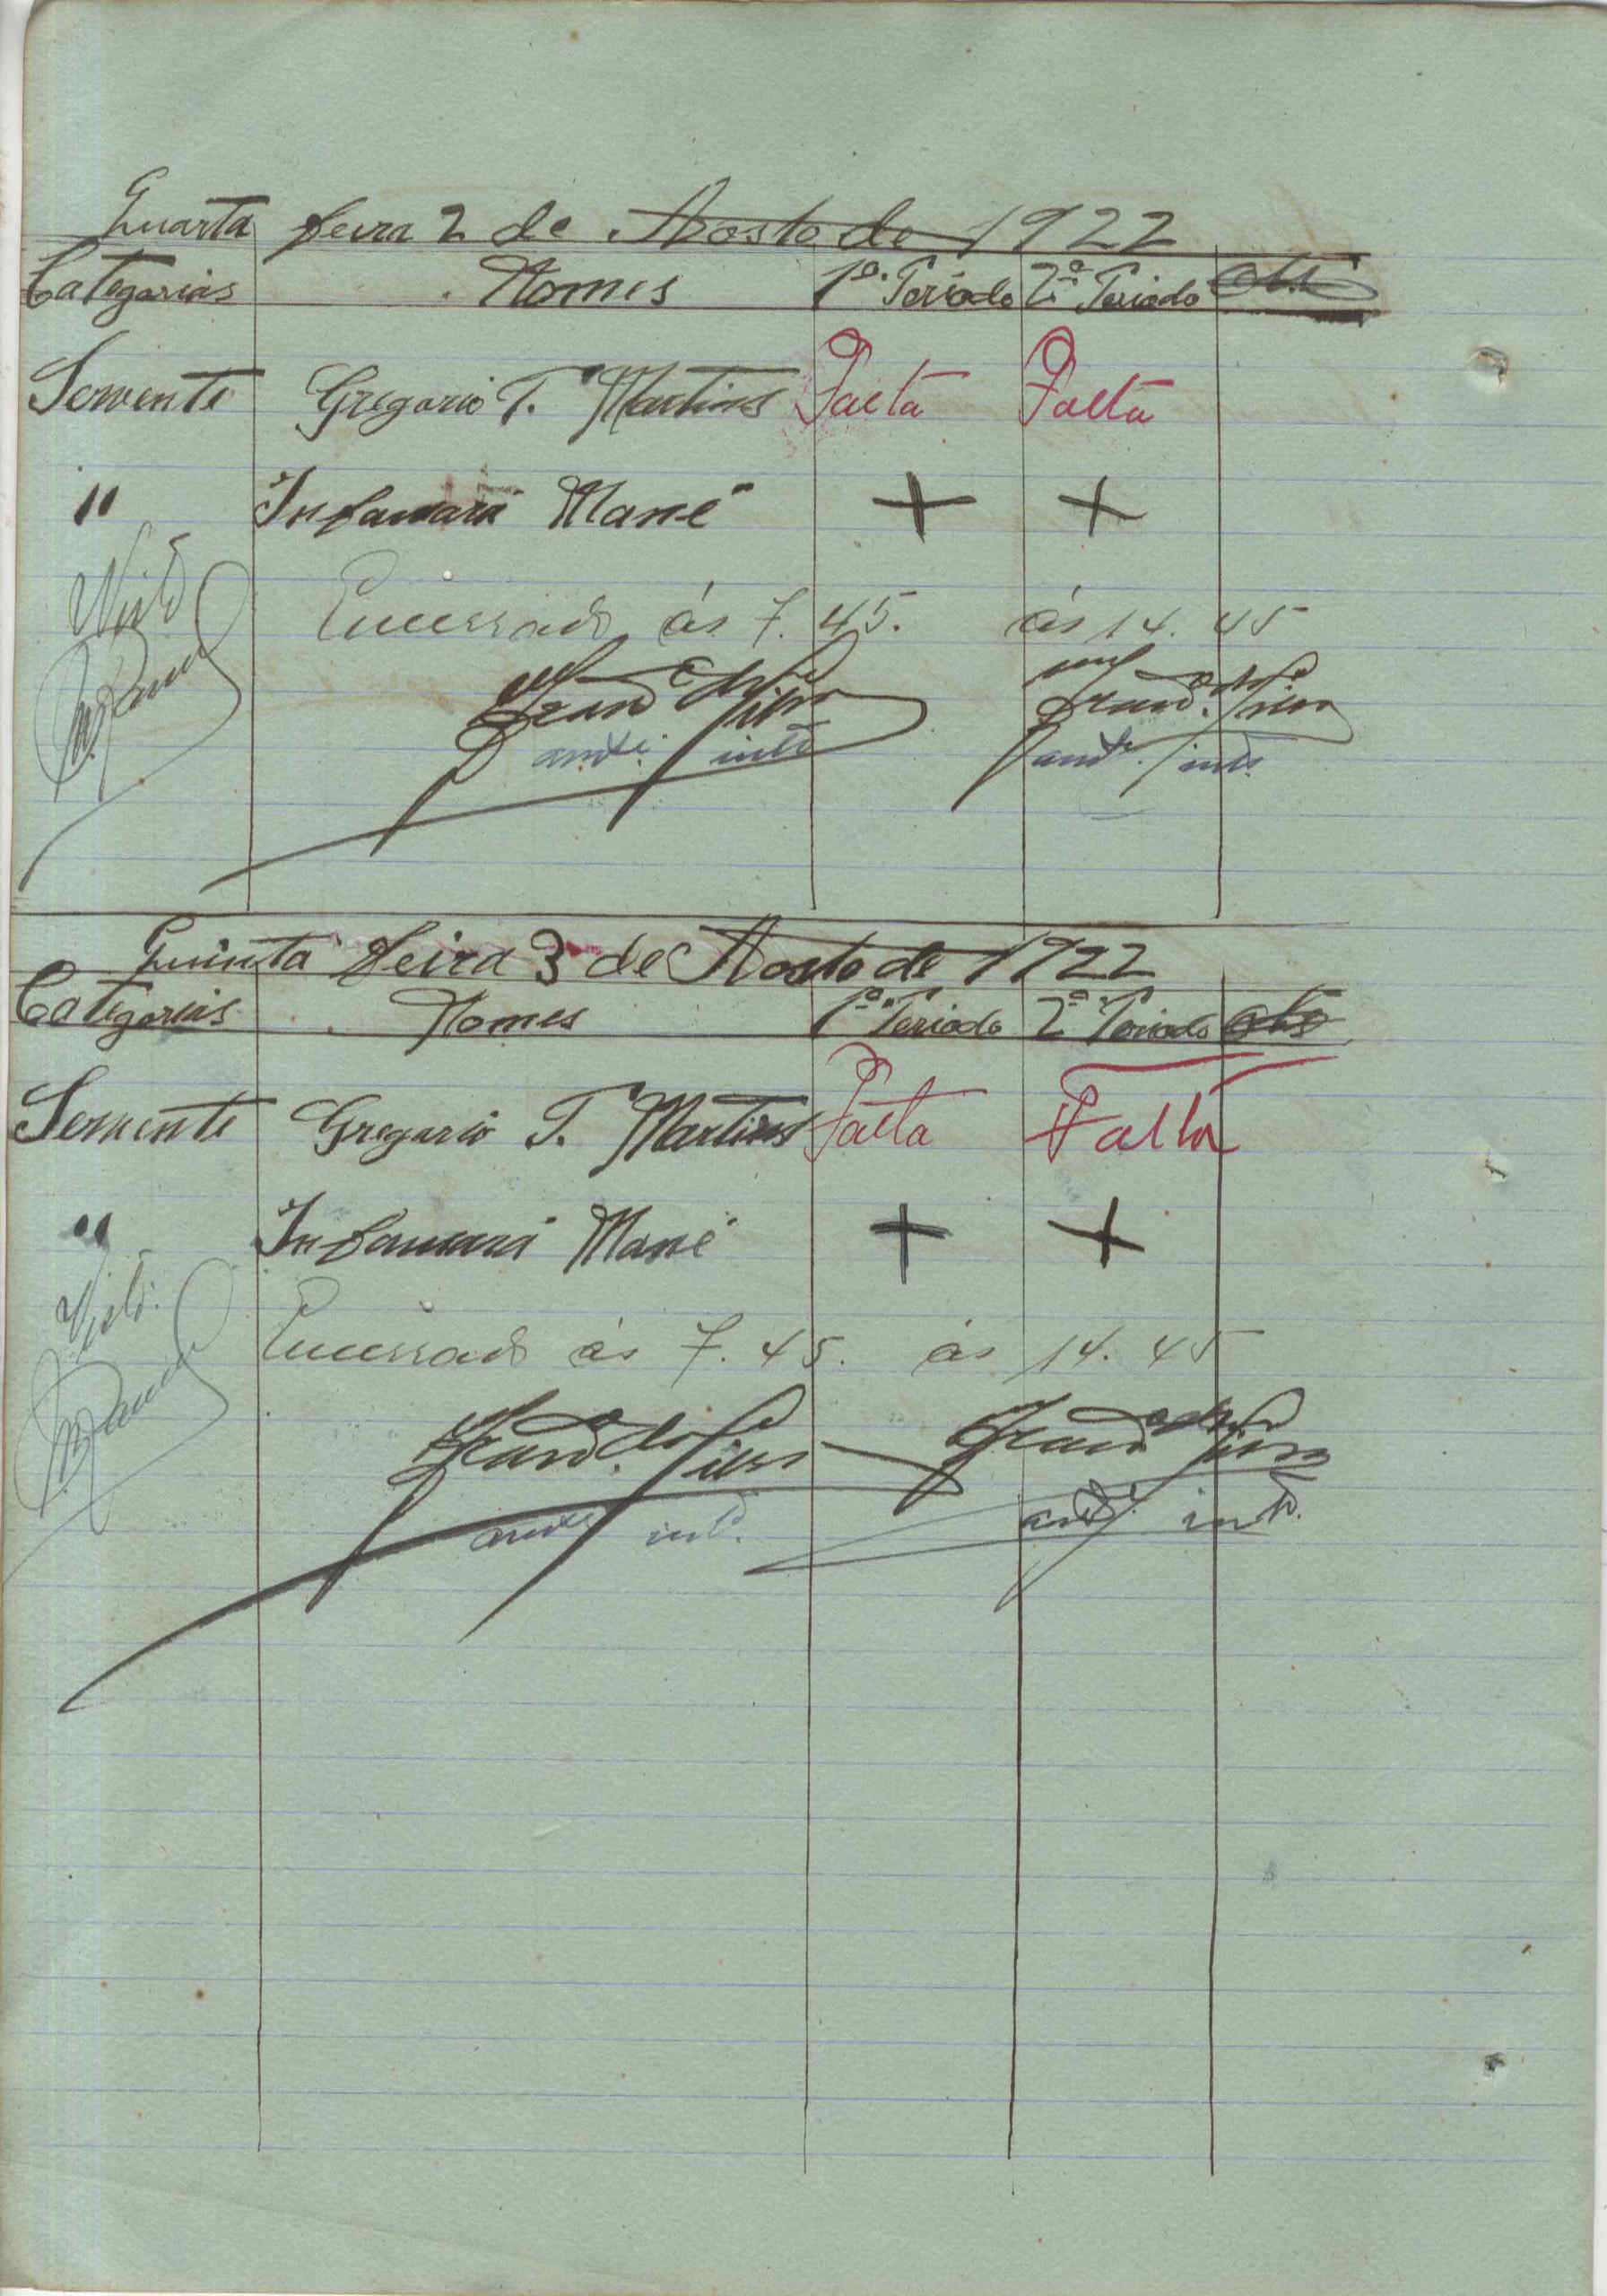 Quarta feira 2 de Agosto de 1922
Categorias Nomes 1º. Periodo 2º Periodo Obs
Servente Gregorio T. Martins Falta Falta
" Infamará Mané + +
Visto
Encerrado ás 7.45. ás 14.45
Quinta feira 3 de Agosto de 1922
Categorias Nomes 1º Periodo 2º Periodo Obs
Servente Gregorio T. Martins Falta Falta
" Infamará Mané + +
Visto.
Encerrado ás 7.45. ás 14.45